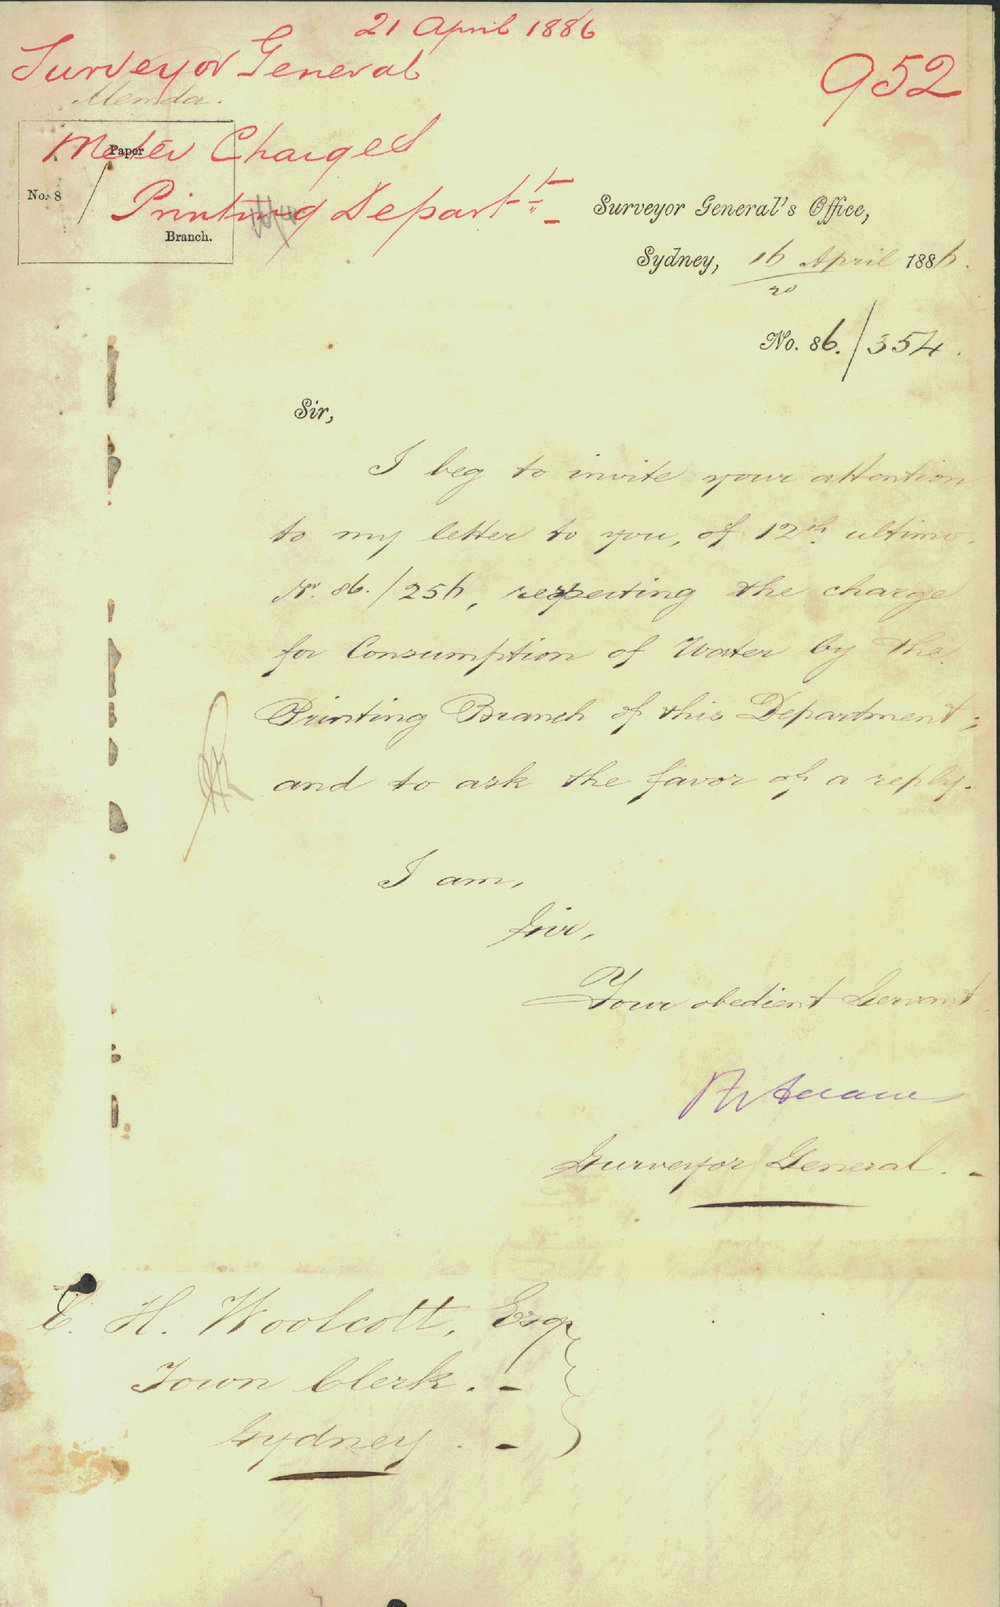 21 April 1886
Surveyor General
952
Memda.
Meter Charges
Paper
No. 8 /
Printing Departt
Branch.
Surveyor General's Office,
Sydney, 16 April 1886.
20
No. 86./354.
Sir,
I beg to invite your attention
to my letter to you, of 12th ultimo,
No. 86./256, respecting the charge
for Consumption of Water by the
Printing Branch of this Department;
and to ask the favor of a reply.
I am,
Sir,
Your obedient Servant
Surveyor General.
C. H. Woolcott, Esq
Town Clerk.
Sydney.